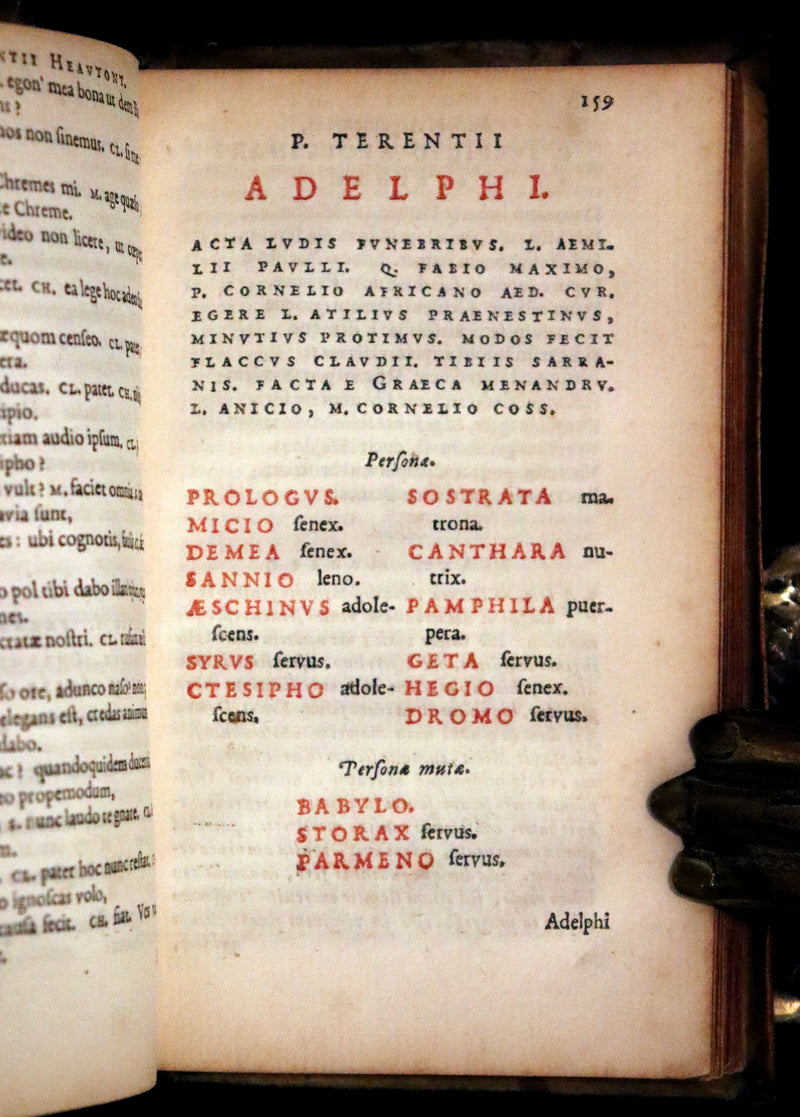 HEAVTONT.
egon' mea bona ut
non ſinemus. CL.
Chremes mi. M. age
Chreme.
video non licere, ut
CH. ea lege hoc
æquom cenſeo. CL.
ducas. CL. patet. CH.
audio ipſum.
vult? M. faciet
ſunt,
ubi cognotis,
pol tibi dabo
noſtri. CL.
ore, adunco naſo?
elegans eſt, credas
dabo.
quandoquidem
propemodum,
laudo te gnate.
CL. pater hoc nunc
ignoſcas volo,
fecit. CH. fiat.
159
P. TERENTII
ADELPHI.
ACTA LVDIS FVNEBRIBVS. L. AEMI-
LII PAVLLI. Q. FABIO MAXIMO,
P. CORNELIO AFRICANO AED. CVR.
EGERE L. ATILIVS PRAENESTINVS,
MINVTIVS PROTIMVS. MODOS FECIT
FLACCVS CLAVDII. TIBIIS SARRA-
NIS. FACTA E GRAECA MENANDRV.
L. ANICIO, M. CORNELIO COSS.
Perſonæ.
PROLOGVS.
MICIO ſenex.
DEMEA ſenex.
SANNIO leno.
ÆSCHINVS adole-
ſcens.
SYRVS ſervus.
CTESIPHO adole-
ſcens.
SOSTRATA ma-
trona.
CANTHARA nu-
trix.
PAMPHILA puer-
pera.
GETA ſervus.
HEGIO ſenex.
DROMO ſervus.
Perſonæ mutæ.
BABYLO.
STORAX ſervus.
PARMENO ſervus.
Adelphi